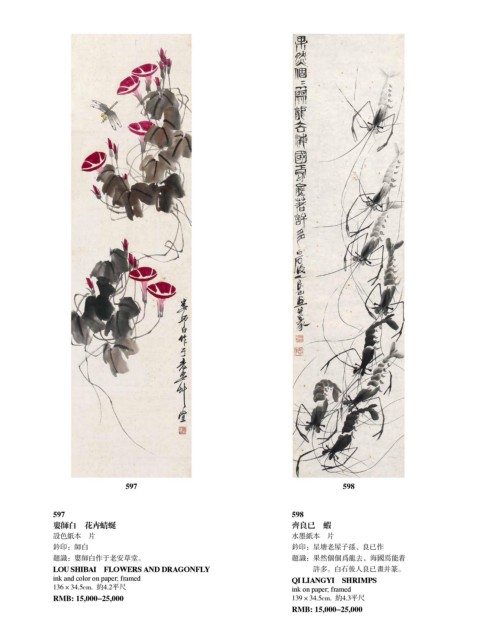 果然個個爲龍去海國焉能着許多
白石後人良已畫並篆
婁師白作于老安艸堂
597
598
597
婁師白　花卉蜻蜓
設色紙本　片
鈐印：師白
題識：婁師白作于老安草堂。
LOU SHIBAI　FLOWERS AND DRAGONFLY
ink and color on paper; framed
136 × 34.5cm.  約4.2平尺
RMB: 15,000–25,000
598
齊良已　蝦
水墨紙本　片
鈐印：星塘老屋子孫、良已作
題識：果然個個爲龍去、海國焉能着
許多。白石後人良已畫并篆。
QI LIANGYI　SHRIMPS
ink on paper; framed
139 × 34.5cm.  約4.3平尺
RMB: 15,000–25,000